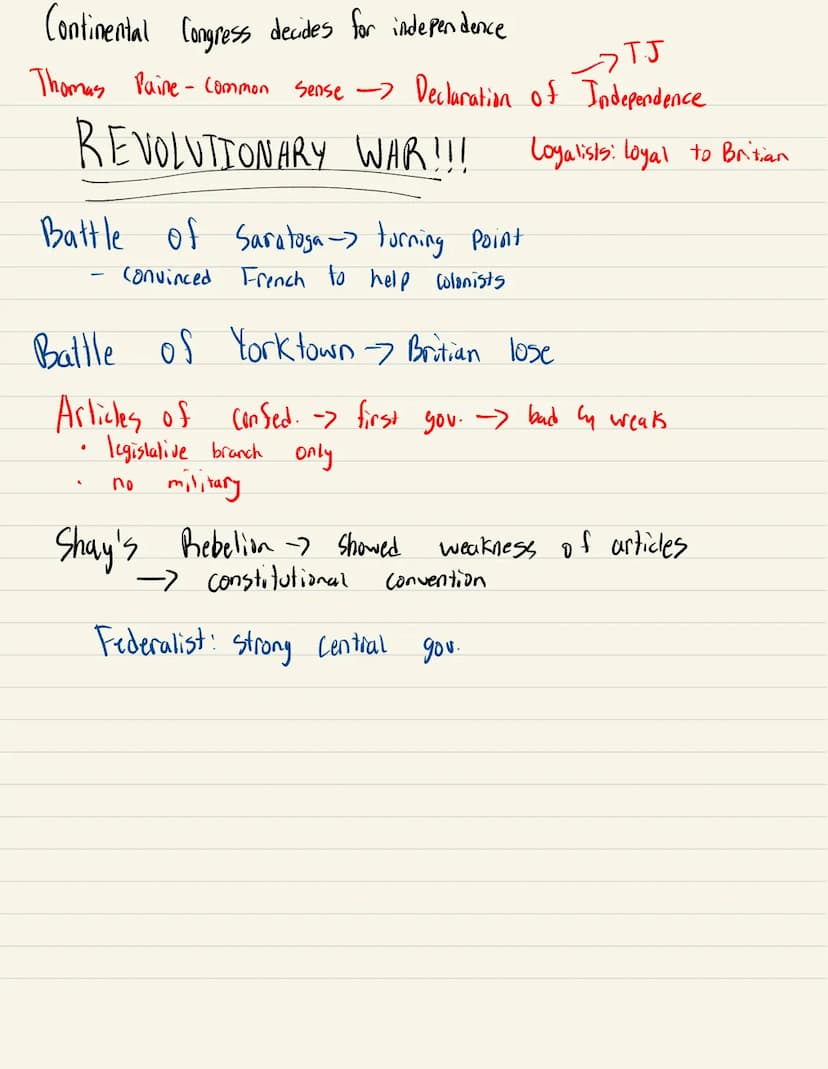 Continental Congress decides for independence
→ TJ
Thomas Paine - Common Sense → Declaration of Independence
REVOLUTIONARY WAR!!!
Loyalists: loyal to Britian
Battle of Saratoga → turning point
- convinced French to help colonists
Battle of Yorktown → Britian lose
Articles of Confed. → first gov. → bad weak
• legislative branch only
• no military
Shay's Rebelion → showed weakness of articles
→ constitutional convention
Federalist: strong central gov.